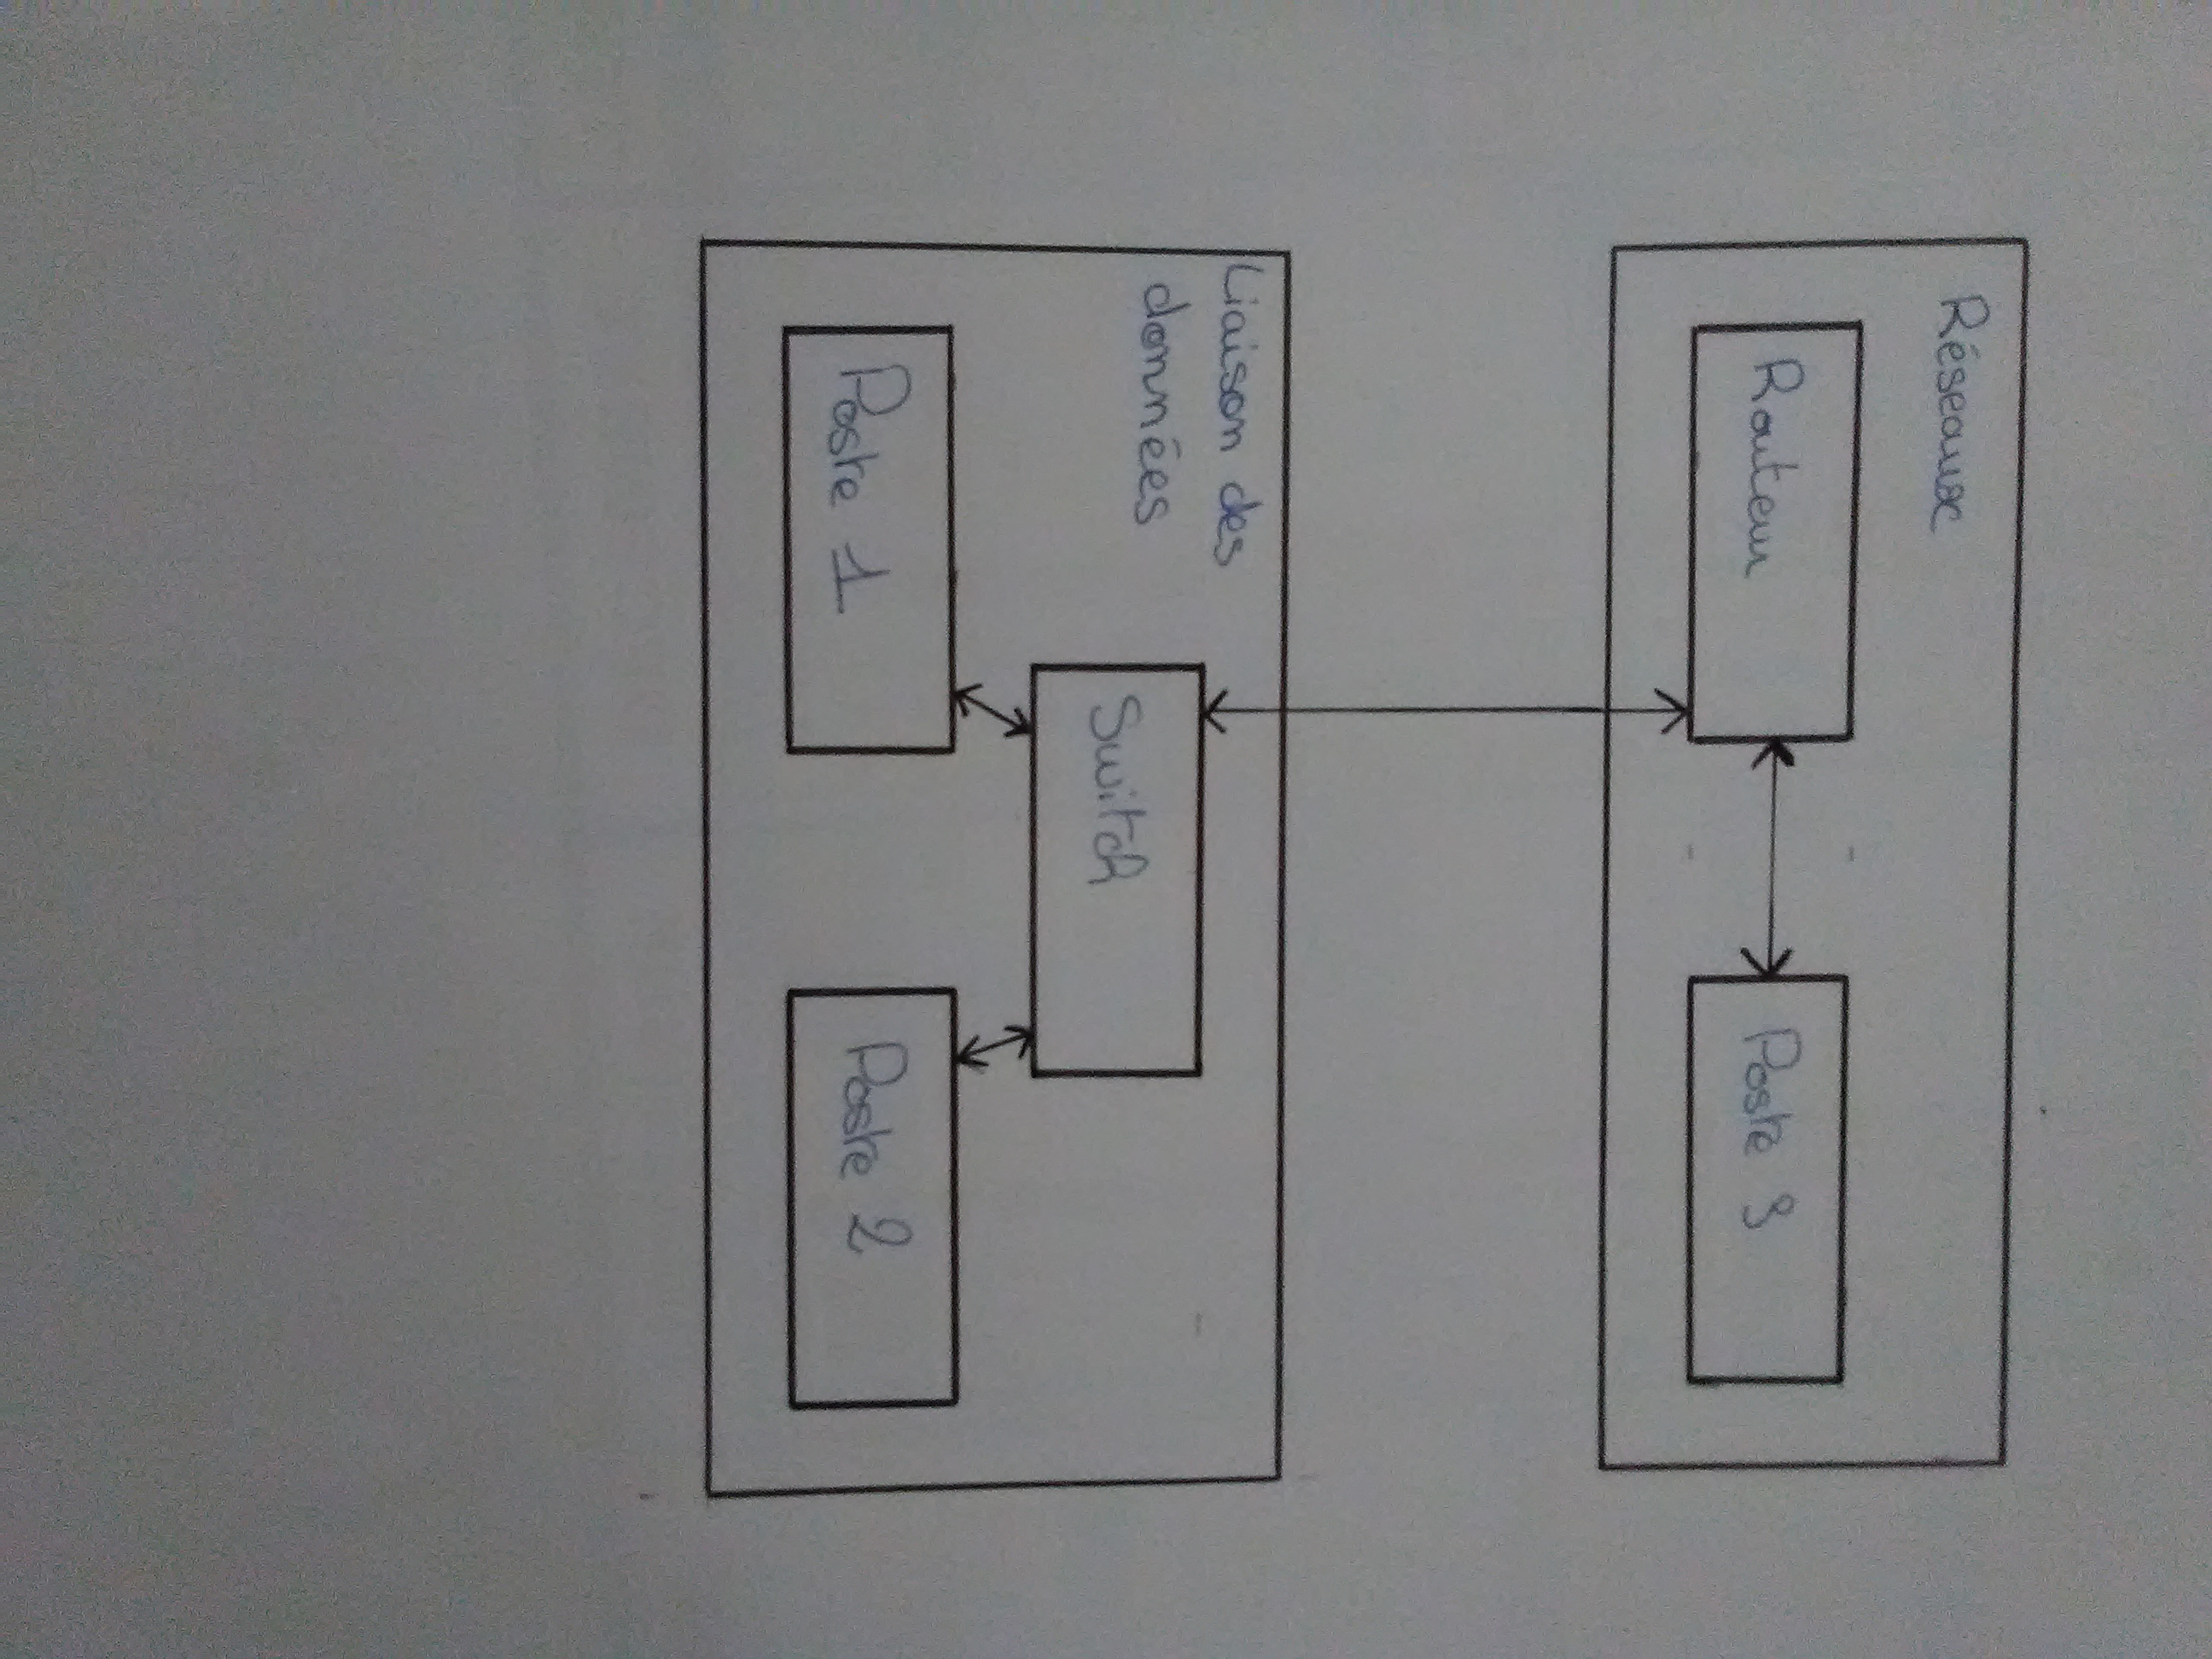 Réseaux
Routeur
Poste 3
Liaison des
données
Switch
Poste 1
Poste 2